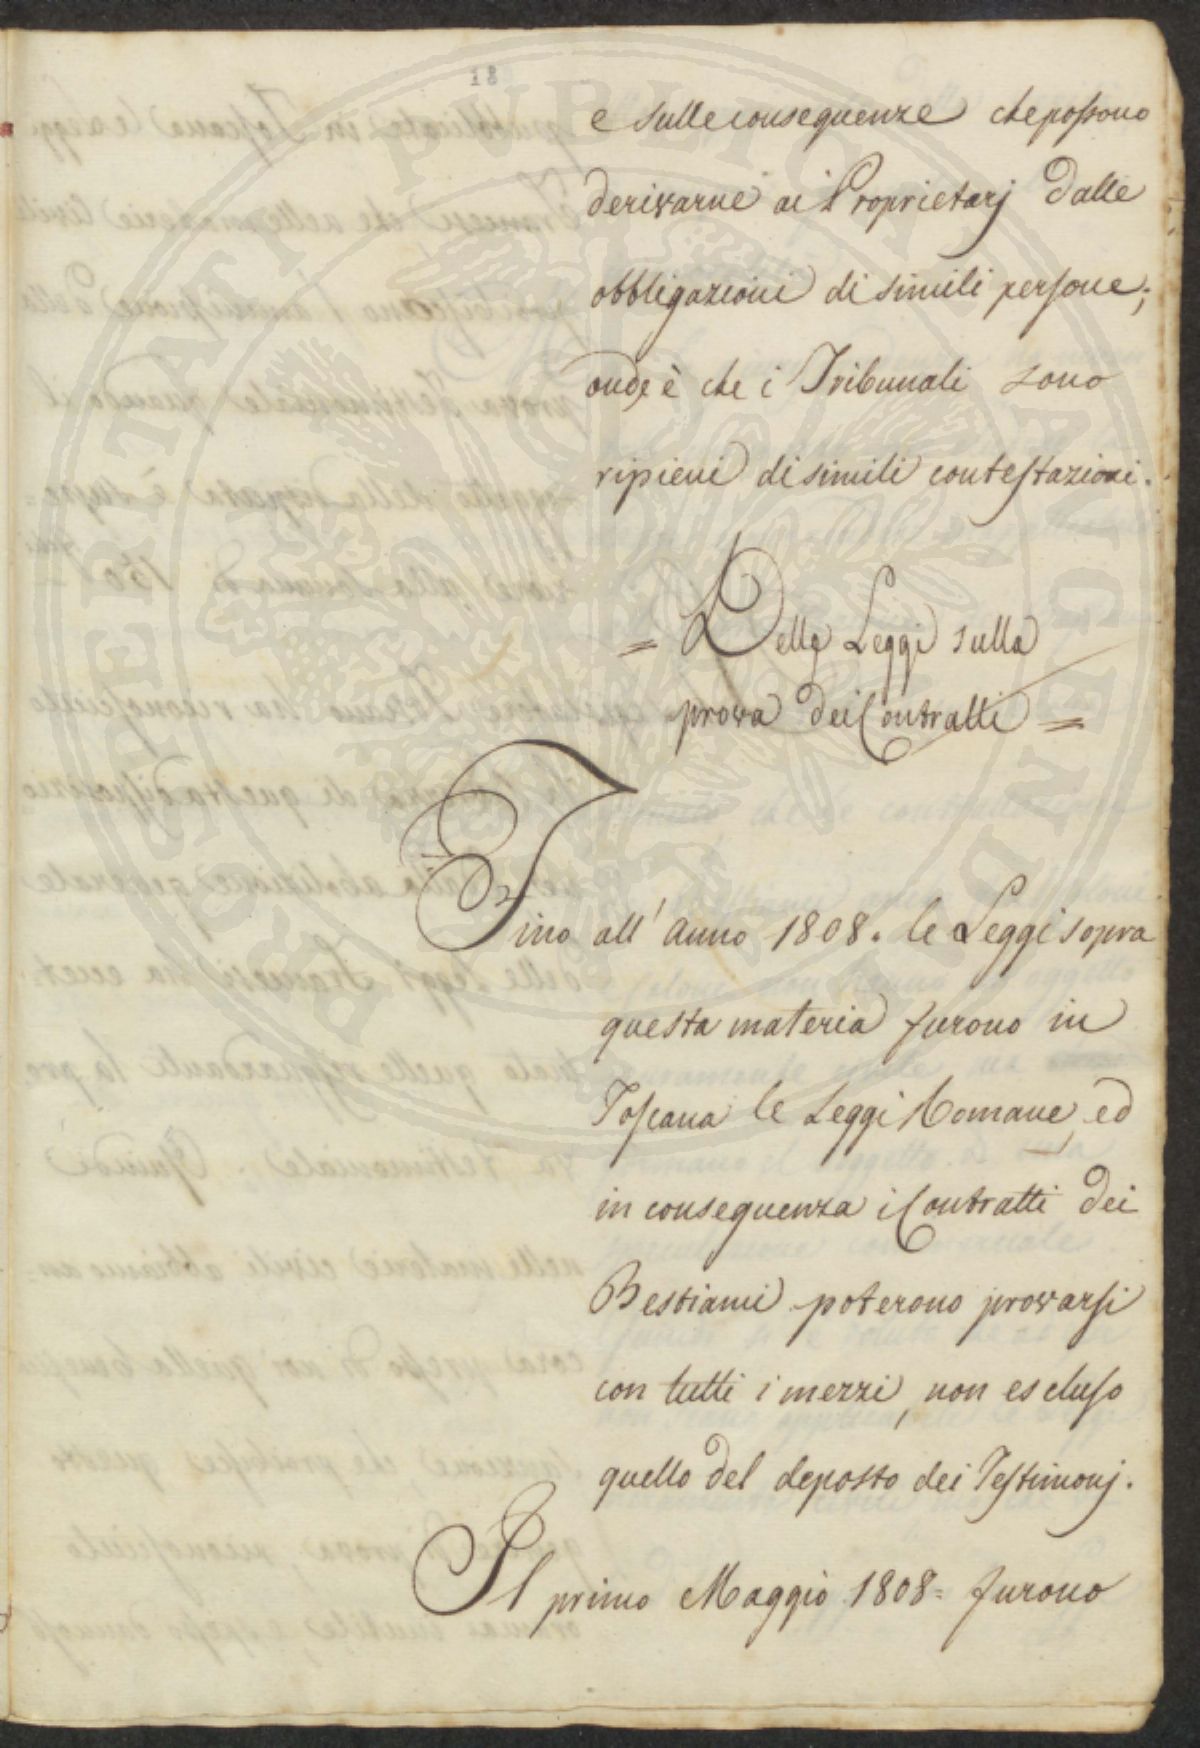 18
e sulle conseguenze che possono
derivarne ai Proprietarj dalle
obbligazioni di simili persone;
onde è che i Tribunali sono
ripieni di simili contestazioni.
= Delle Leggi sulla
prova dei Contratti =
Fino all' anno 1808. le Leggi sopra
questa materia furono in
Toscana le Leggi Romane, ed
in conseguenza i Contratti dei
Bestiami poterono provarsi
con tutti i mezzi, non escluso
quello del deposto dei Testimonj.
Il primo Maggio 1808= furono
PROSPERITATI PUBLICAE AUGENDAE